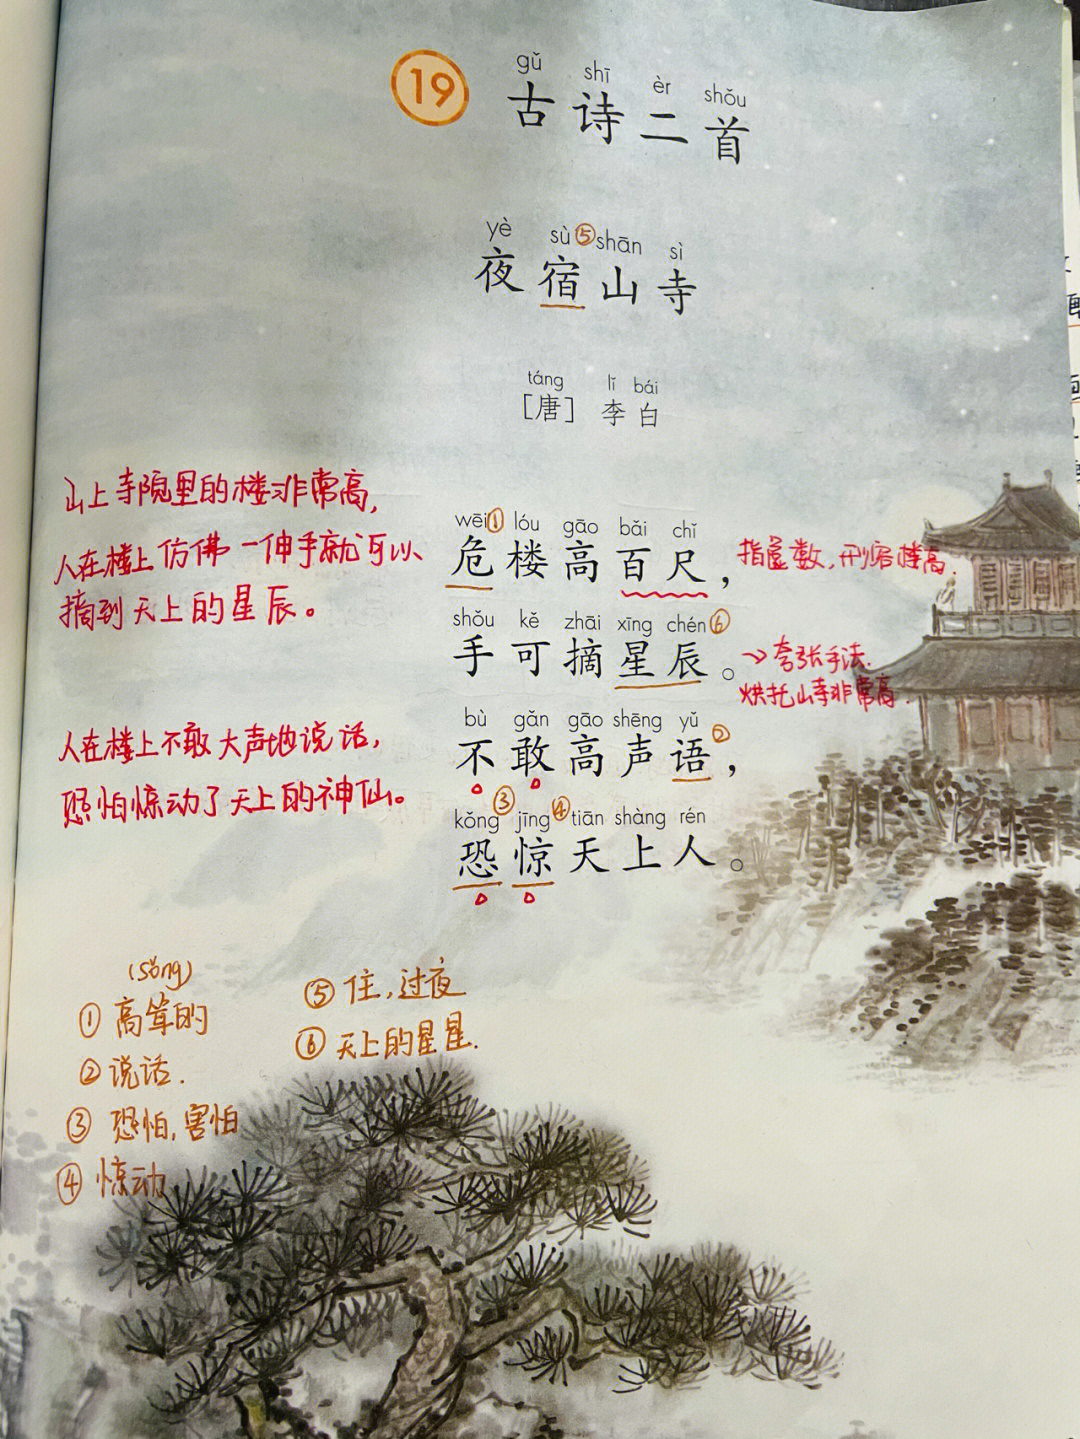 19
gǔ shī èr shǒu
古诗二首
yè sù⑤shān sì
夜宿山寺
táng lǐ bái
[唐] 李白
山上寺院里的楼非常高，
人在楼上仿佛一伸手就可以
摘到天上的星辰。
wēi① lóu gāo bǎi chǐ
危楼高百尺，
指虚数，形容楼高.
shǒu kě zhāi xīng chén⑥
手可摘星辰。
→夸张手法.
烘托山寺非常高.
人在楼上不敢大声地说话，
恐怕惊动了天上的神仙。
bù gǎn gāo shēng yǔ②
不敢高声语，
kǒng③ jīng④ tiān shàng rén
恐惊天上人。
(sǒng)
①高耸的
②说话.
③恐怕,害怕
④惊动
⑤住,过夜
⑥天上的星星.